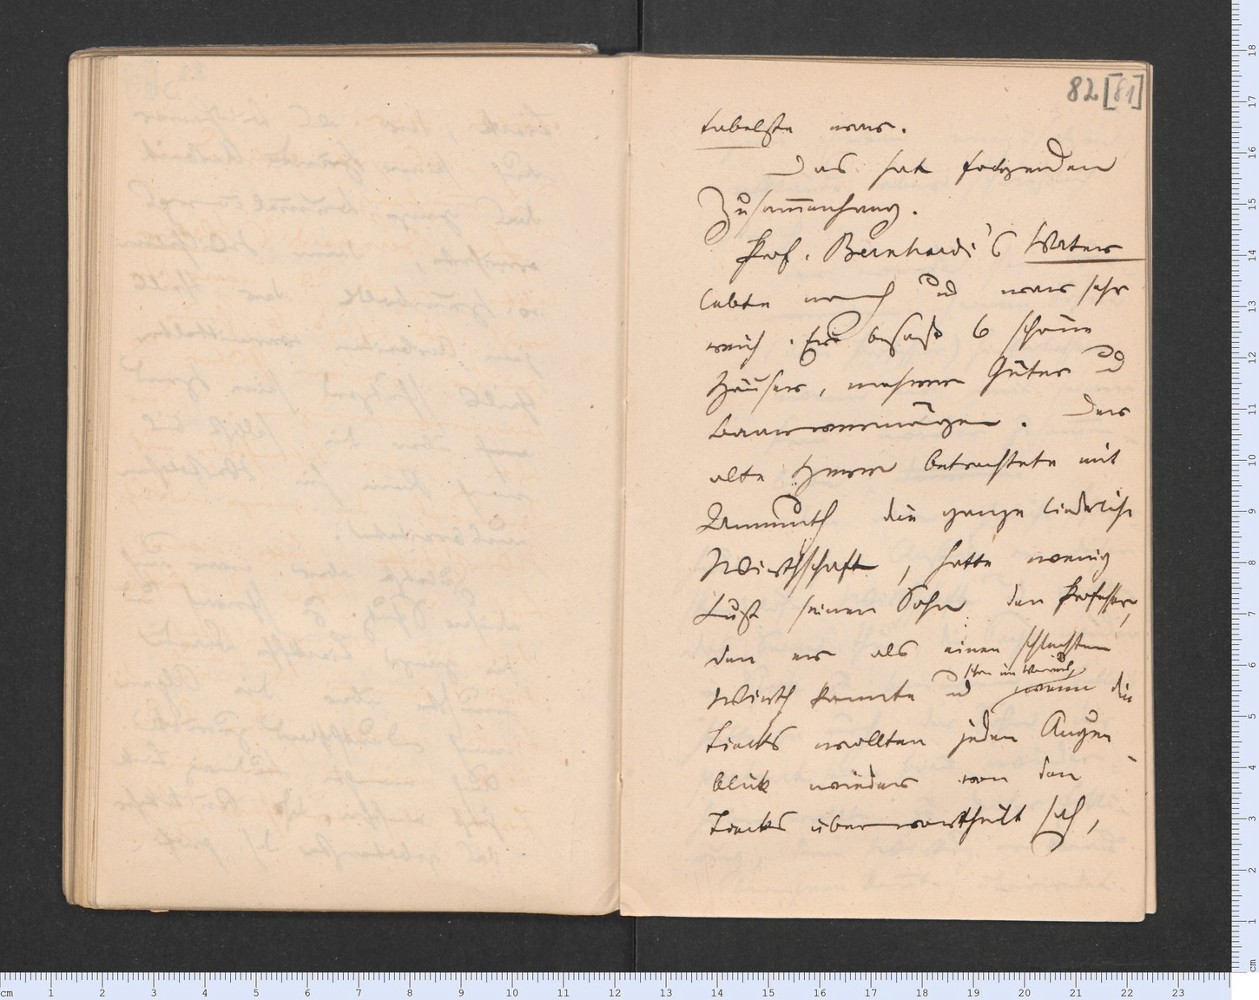 82 [81]
tabelste war.
Das hat folgenden
Zusam̅enhang.
Prof. Bernhardi's Vater
lebte noch und war sehr
reich. Er besaß 6 schöne
Häuser, mehrere Güter und
Baarvermögen. Der
alte Herr betrachtete mit
Unmuth die ganze liederliche
Wirthschaft, hatte wenig
Lust seinen Sohn den Professor,
den er als einen schlechten
Wirth kannte und die
Tiecks wollten jeden Augen
blick wieder von den
Tiecks übervortheilt sah,